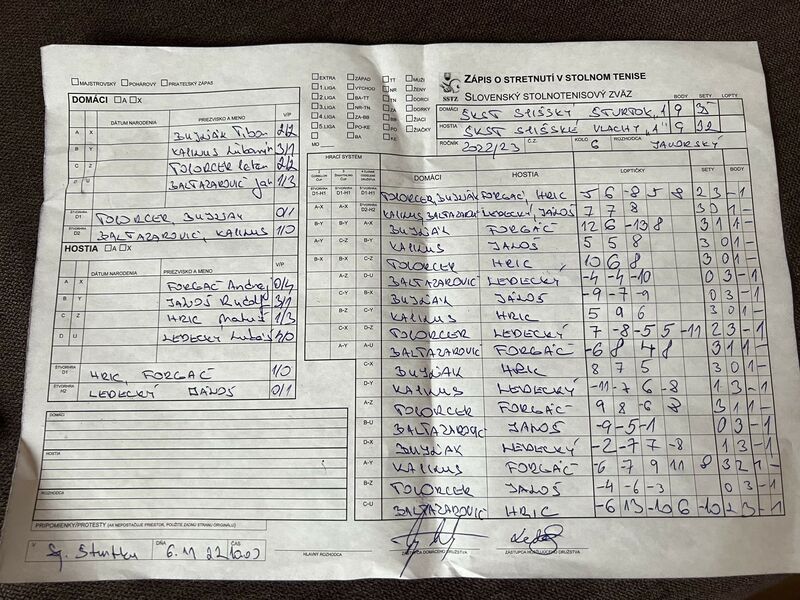 MAJSTROVSKÝ POHÁROVÝ PRIATEĽSKÝ ZÁPAS
DOMÁCI A X
DÁTUM NARODENIA PRIEZVISKO A MENO V/P
A X BUJŇÁK Tibor 2/2
B Y KALINUS 3/1
C Z TOLORCER 2/2
D U BALTAZAROVIČ 1/3
ŠTVORHRA D1 TOLORCER, BUJŇÁK 0/1
ŠTVORHRA D2 BALTAZAROVIČ, KALINUS 1/0
HOSTIA A X
DÁTUM NARODENIA PRIEZVISKO A MENO V/P
A X FORGÁČ Andrej 0/4
B Y JÁNOŠ Rudolf 3/1
C Z HRIC Matúš 1/3
D U LEDECKÝ Lukáš
ŠTVORHRA D1 HRIC, FORGÁČ 1/0
ŠTVORHRA H2 LEDECKÝ JÁNOŠ 0/1
DOMÁCI
HOSTIA
ROZHODCA
PRIPOMIENKY/PROTESTY (AK NEPOSTAČUJE PRIESTOR, POUŽITE ZADNÚ STRANU ORIGINÁLU)
V DŇA 6.11.22 ČAS
EXTRA ZÁPAD TT MUŽI
1.LIGA VÝCHOD NR ŽENY
2.LIGA BA-TT TN DORCI
3.LIGA NR-TN ZA DORKY
4.LIGA ZA-BB BB ŽIACI
5.LIGA PO-KE PO ŽIAČKY
BA KE
MO
ZÁPIS O STRETNUTÍ V STOLNOM TENISE
SSTZ SLOVENSKÝ STOLNOTENISOVÝ ZVÄZ
BODY SETY LOPTY
DOMÁCI ŠKST SPIŠSKÝ ŠTVRTOK "1" 9 35
HOSTIA ŠKST SPIŠSKÉ VLACHY "1" 9 32
ROČNÍK 2022/23 Č.Z. KOLO 6 ROZHODCA JAVORSKÝ
HRACÍ SYSTÉM
DOMÁCI HOSTIA LOPTIČKY SETY BODY
ŠTVORHRA D1-H1 TOLORCER, BUJŇÁK FORGÁČ, HRIC 5 6 -8 5 -8 2 3 -1
A-X KALINUS, BALTAZAROVIČ LEDECKÝ, JÁNOŠ 7 7 8 3 0 1 -
B-Y A-Y BUJŇÁK FORGÁČ 12 6 -13 8 3 1 1 -
A-Y C-Z B-Y KALINUS JÁNOŠ 5 5 8 3 0 1 -
B-X B-X C-Z TOLORCER HRIC 10 6 8 3 0 1 -
A-Z D-U BALTAZAROVIČ LEDECKÝ -4 -4 -10 0 3 -1
C-Y B-X BUJŇÁK JÁNOŠ -9 -7 -9 0 3 -1
B-Z C-Y KALINUS HRIC 5 9 6 3 0 1 -
C-X D-Z TOLORCER LEDECKÝ 7 -8 -5 5 -11 2 3 -1
A-Y A-U BALTAZAROVIČ FORGÁČ -6 8 4 8 3 1 1 -
C-X BUJŇÁK HRIC 8 7 5 3 0 1 -
D-Y KALINUS LEDECKÝ -11 -7 6 -8 1 3 -1
A-Z TOLORCER FORGÁČ 9 8 -6 8 3 1 1 -
B-U BALTAZAROVIČ JÁNOŠ -9 -5 -1 0 3 -1
D-X BUJŇÁK LEDECKÝ -2 -7 7 -8 1 3 -1
A-Y KALINUS FORGÁČ -6 -7 9 11 8 3 2 1 -
B-Z TOLORCER JÁNOŠ -4 -6 -3 0 3 -1
C-U BALTAZAROVIČ HRIC -6 13 -10 6 -10 2 3 -1
HLAVNÝ ROZHODCA ZÁSTUPCA DOMÁCEHO DRUŽSTVA ZÁSTUPCA HOSŤUJÚCEHO DRUŽSTVA